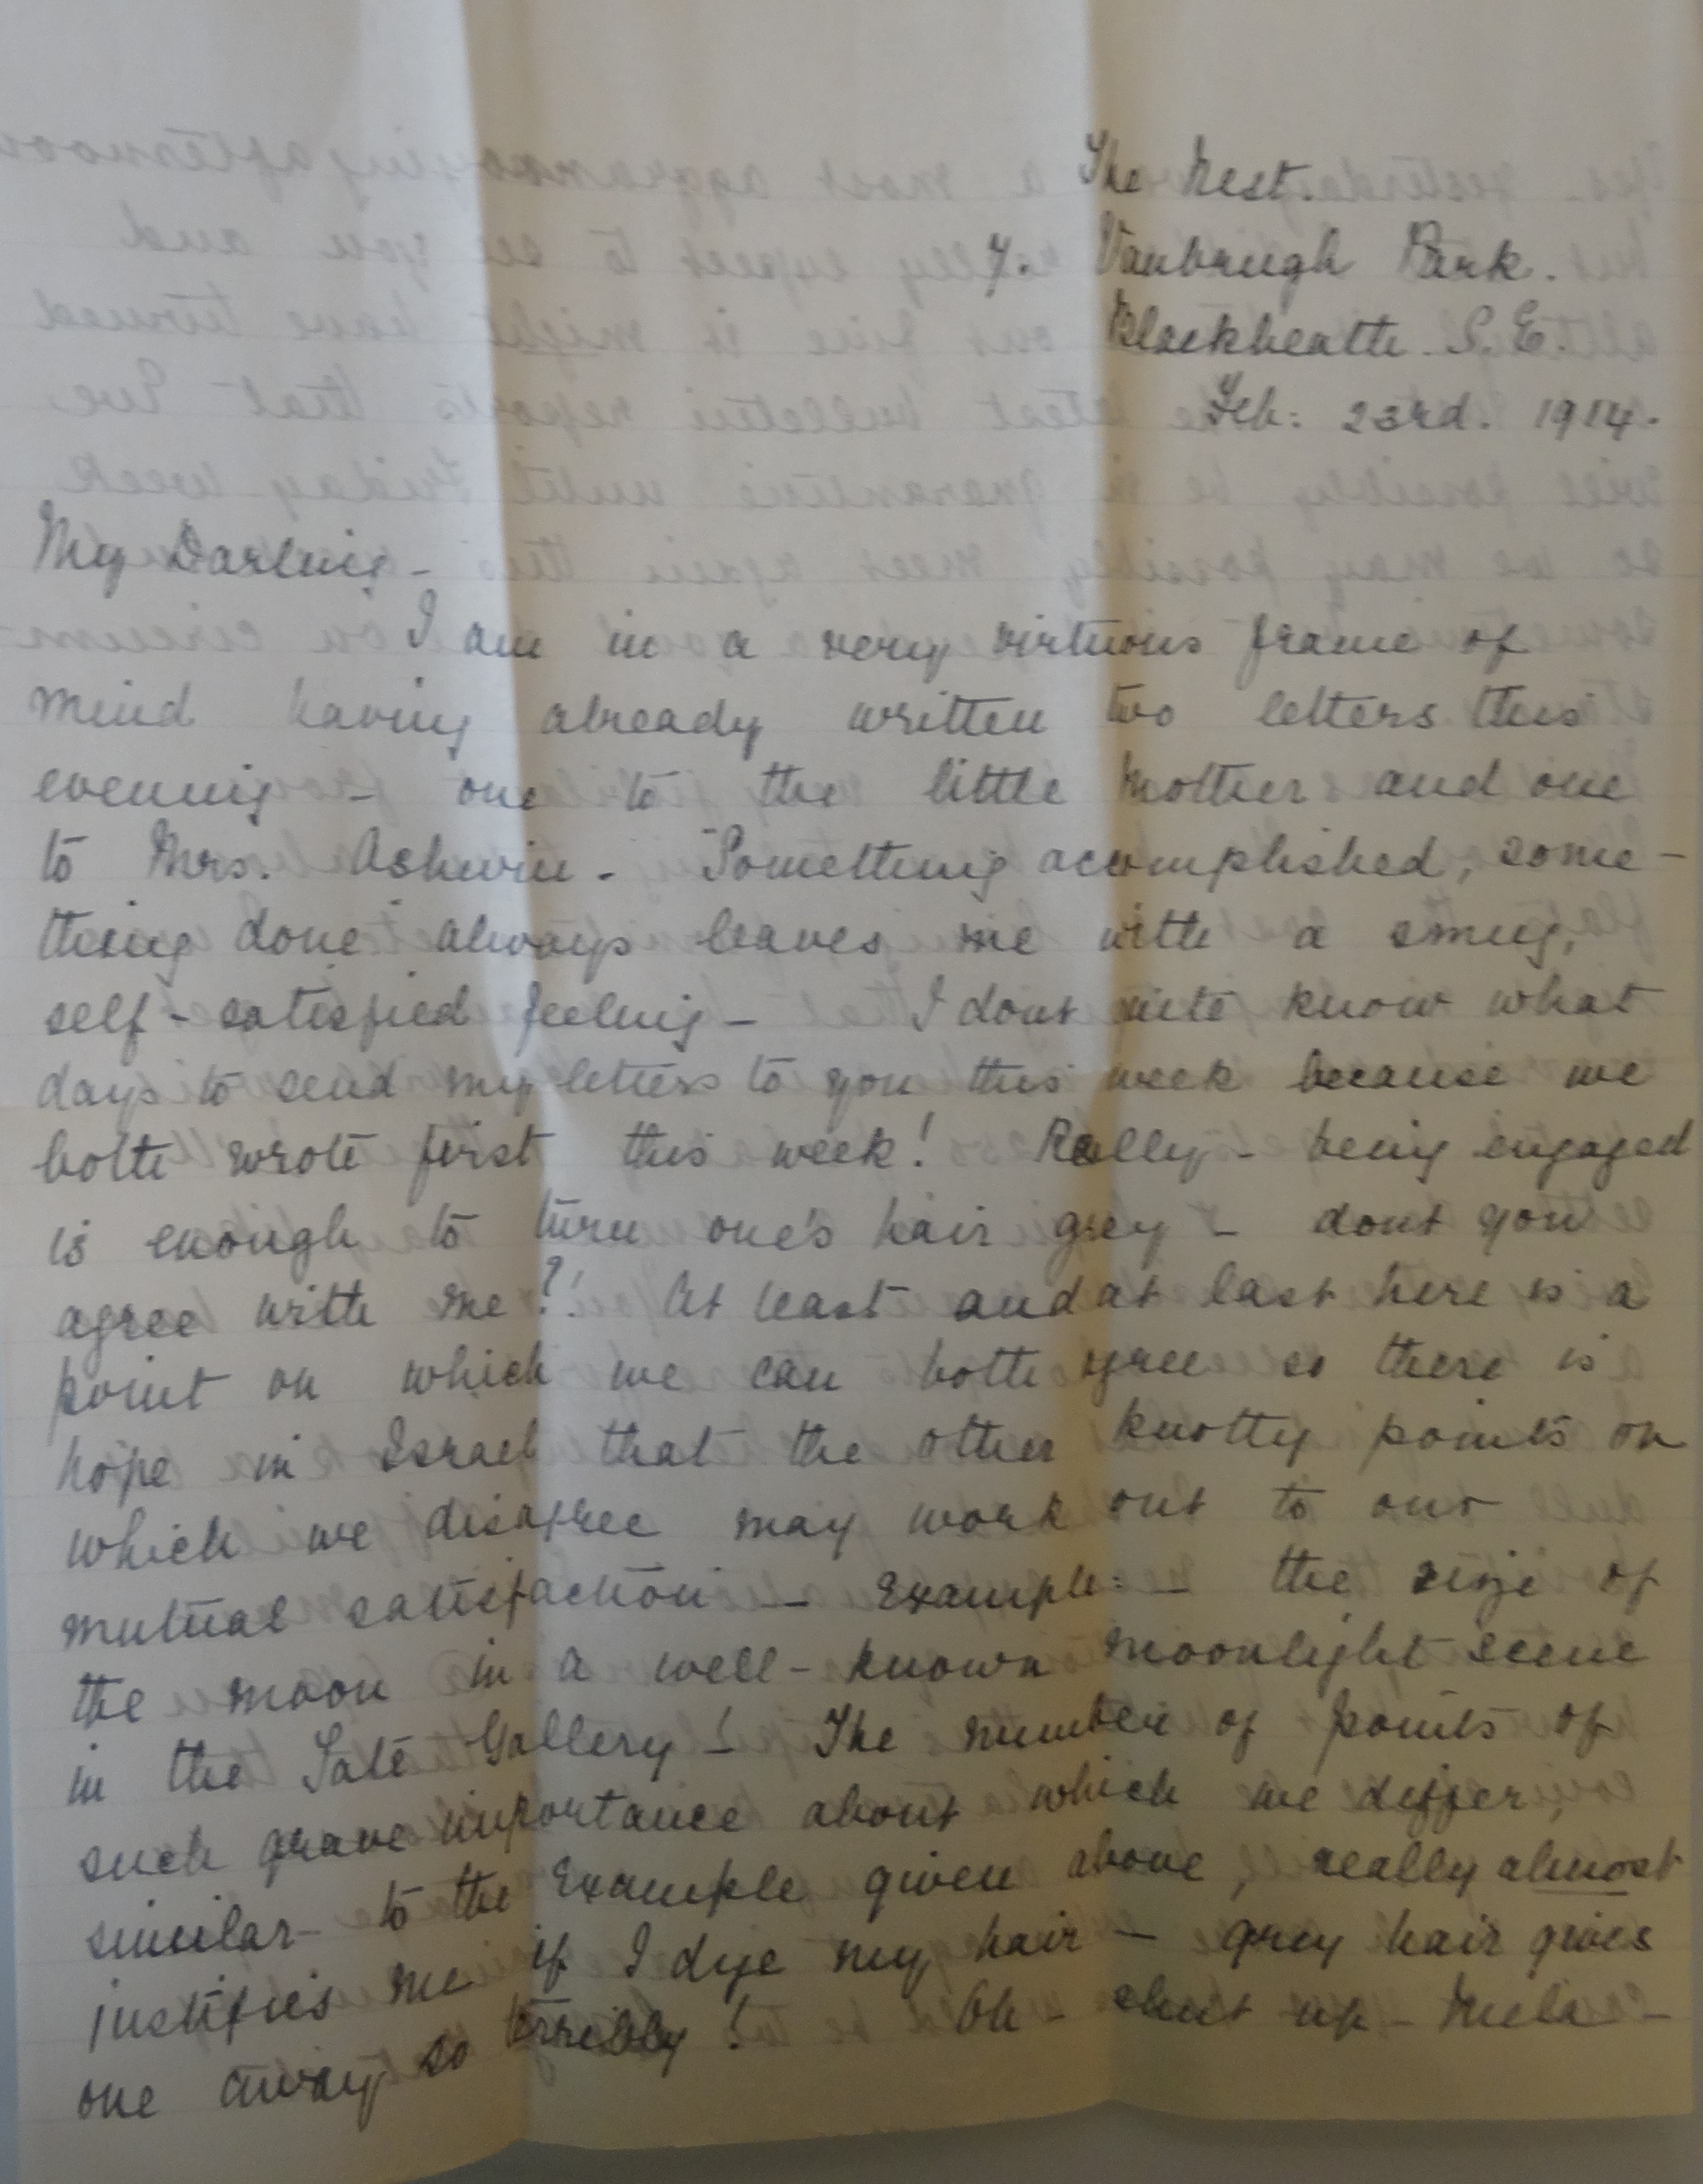 The Nest.
7. Vanbrugh Park.
Blackheath. S.E.
Feb: 23rd. 1914.
My Darling -
I am in a very virtuous frame of
mind having already written two letters this
evening - one to the little Mother and one
to Mrs. Ashwin. "Something acomplished, some-
thing done" always leaves me with a smug,
self-satisfied feeling - I dont quite know what
days to send my letters to you this week because we
both wrote first this week! Really - being engaged
is enough to turn one's hair grey - dont you
agree with me?! At least and at last here is a
point on which we can both agree so there is
hope in Israel that the other knotty points on
which we disagree may work out to our
mutual satisfaction - Example:- the size of
the moon in a well-known moonlight scene
in the Tate Gallery! The number of points of
such grave importance about which we differ,
similar to the Example given above, really almost
justifies me if I dye my hair - grey hair gives
one away so terribly! Oh - shut up - Mela-